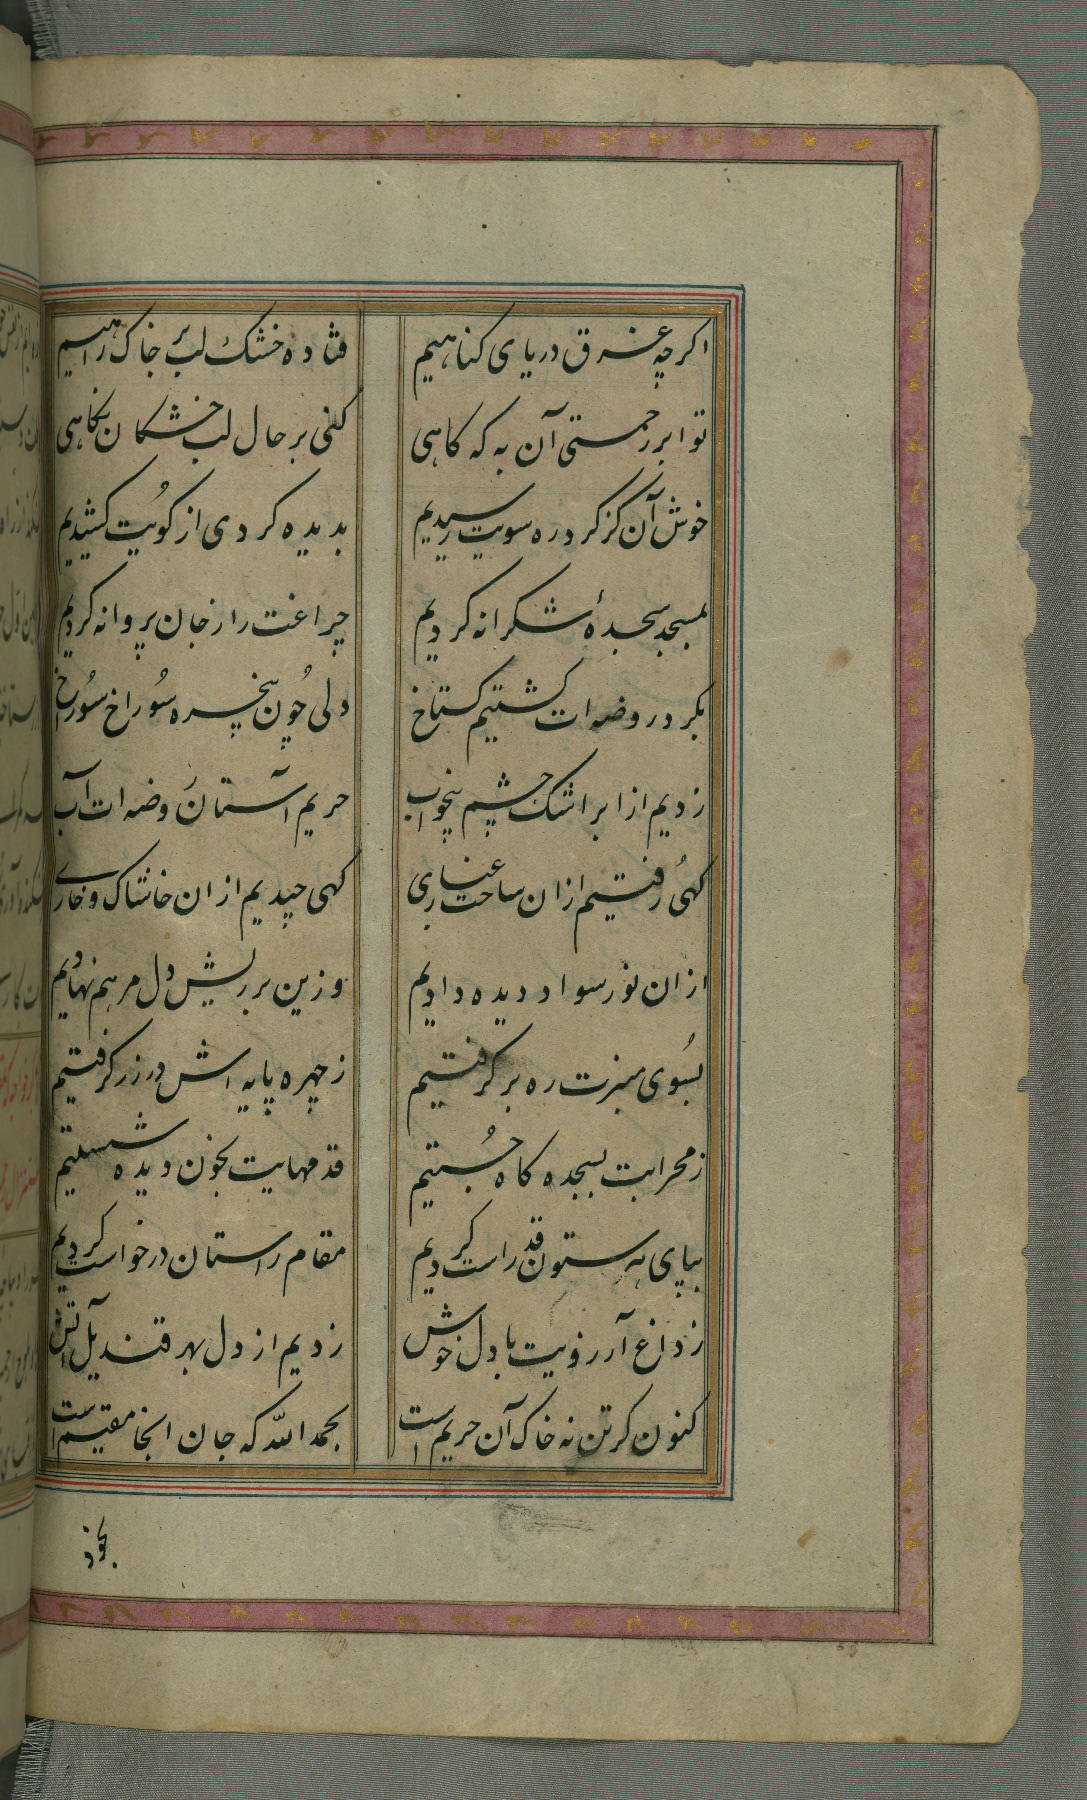 اکرچه غرق دریای کناهیم فتاده خشک لب بر خاک راهیم
تو ابر رحمتی آن به که کاهی کنی بر حال لب خشکان نکاهی
خوش آن کز کرد ره سویت رسیدیم بدیده کردی از کویت کشیدیم
بمسجد سجدهٔ شکرانه کردیم چراغت را ز جان پروانه کردیم
بکرد روضه ات کشتیم کستاخ دلی چون پنجره سوراخ سوراخ
زدیم از ابر اشک چشم بیخواب حریم آستان روضه ات آب
کهی رفتیم ازان ساحت غباری کهی چیدیم ازان خاشاک و خاری
ازان نور سواد دیده دادیم وزین بر ریش دل مرهم نهادیم
بسوی منبرت ره بر کرفتیم ز چهره پایه اش در زر کرفتیم
ز محرابت بسجده کاه جستیم قدمهایت بخون دیده شستیم
بپای هر ستون قد راست کردیم مقام راستان درخواست کردیم
ز داغ آرزویت با دل خوش زدیم از دل بهر قندیل آتش
کنون کرتن نه خاک آن حریم است بحمد الله که جان انجا مقیم است
بخود